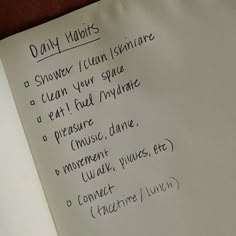 Daily Habits
Shower / clean / skincare
clean your space
eat! fuel / hydrate
pleasure
(music, dance,
movement
(walk, pilates, etc)
connect
(facetime / lunch)